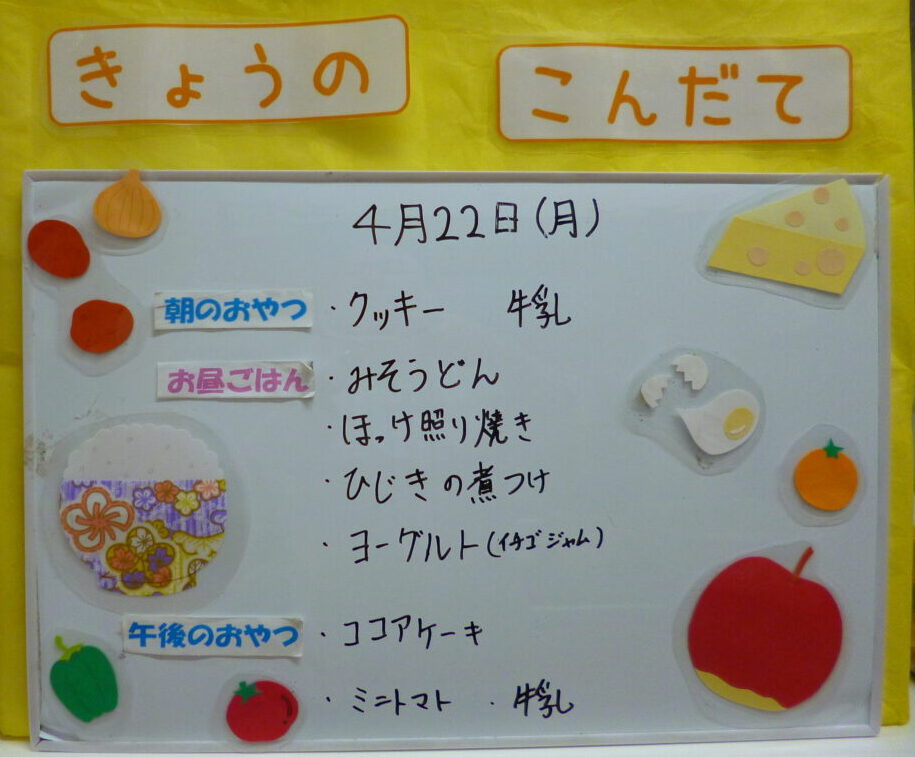 きょうの こんだて
4月22日(月)
朝のおやつ ・クッキー 牛乳
お昼ごはん ・みそうどん
・ほっけ照り焼き
・ひじきの煮つけ
・ヨーグルト(イチゴジャム)
午後のおやつ ・ココアケーキ
・ミニトマト ・牛乳